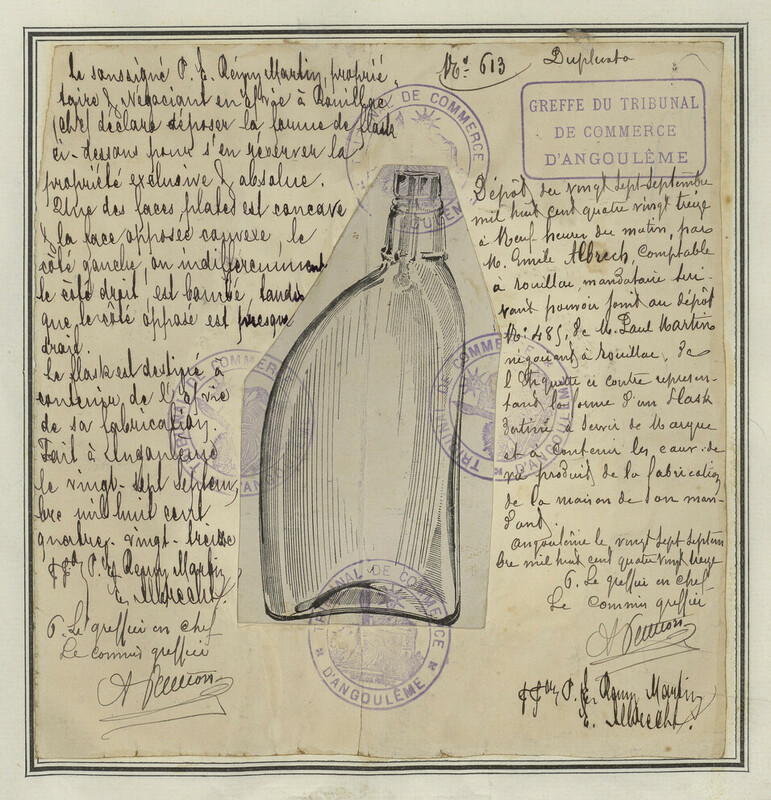 Nº 613
Duplicata
Le soussigné P. E. Rémy Martin, proprié
taire & Négociant en            à Rouillac
(Chte) déclare déposer la forme de flask
ci-dessous pour s'en réserver la
propriété exclusive & absolue.
Une des faces plates est concave
& la face opposée convexe, le
côté gauche, ou indifféremment
le côté droit est bombé, tandis
que le côté opposé est presque
droit.
Le flask est destiné à
contenir de l'eau de vie
de sa fabrication.
Fait à Angoulême
le vingt-sept septem
bre mil huit cent
quatre-vingt-treize
P. E. Remy Martin
E. Albrecht.
P. Le greffier en chef
Le commis greffier
GREFFE DU TRIBUNAL
DE COMMERCE
D'ANGOULÊME
Dépôt du vingt sept septembre
mil huit cent quatre vingt treize
à Neuf heures du matin, par
M. Emile Albrech, comptable
à rouillac, mandataire sui
vant pouvoir joint au dépôt
Nº 485, de M. Paul Martin
négociant à rouillac, de
l'Etiquette ci contre représen
tant la forme d'un flask
destiné à servir de Marque
et à contenir les eaux-de
vie produits de la fabrication
de la maison de son man
dant.
Angoulême le vingt sept septem
bre mil huit cent quatre vingt treize
P. Le greffier en chef
Le commis greffier
P. E. Remy Martin
E. Albrecht.
TRIBUNAL DE COMMERCE
D'ANGOULÊME
TRIBUNAL DE COMMERCE
D'ANGOULÊME
TRIBUNAL DE COMMERCE
D'ANGOULÊME
TRIBUNAL DE COMMERCE
D'ANGOULÊME